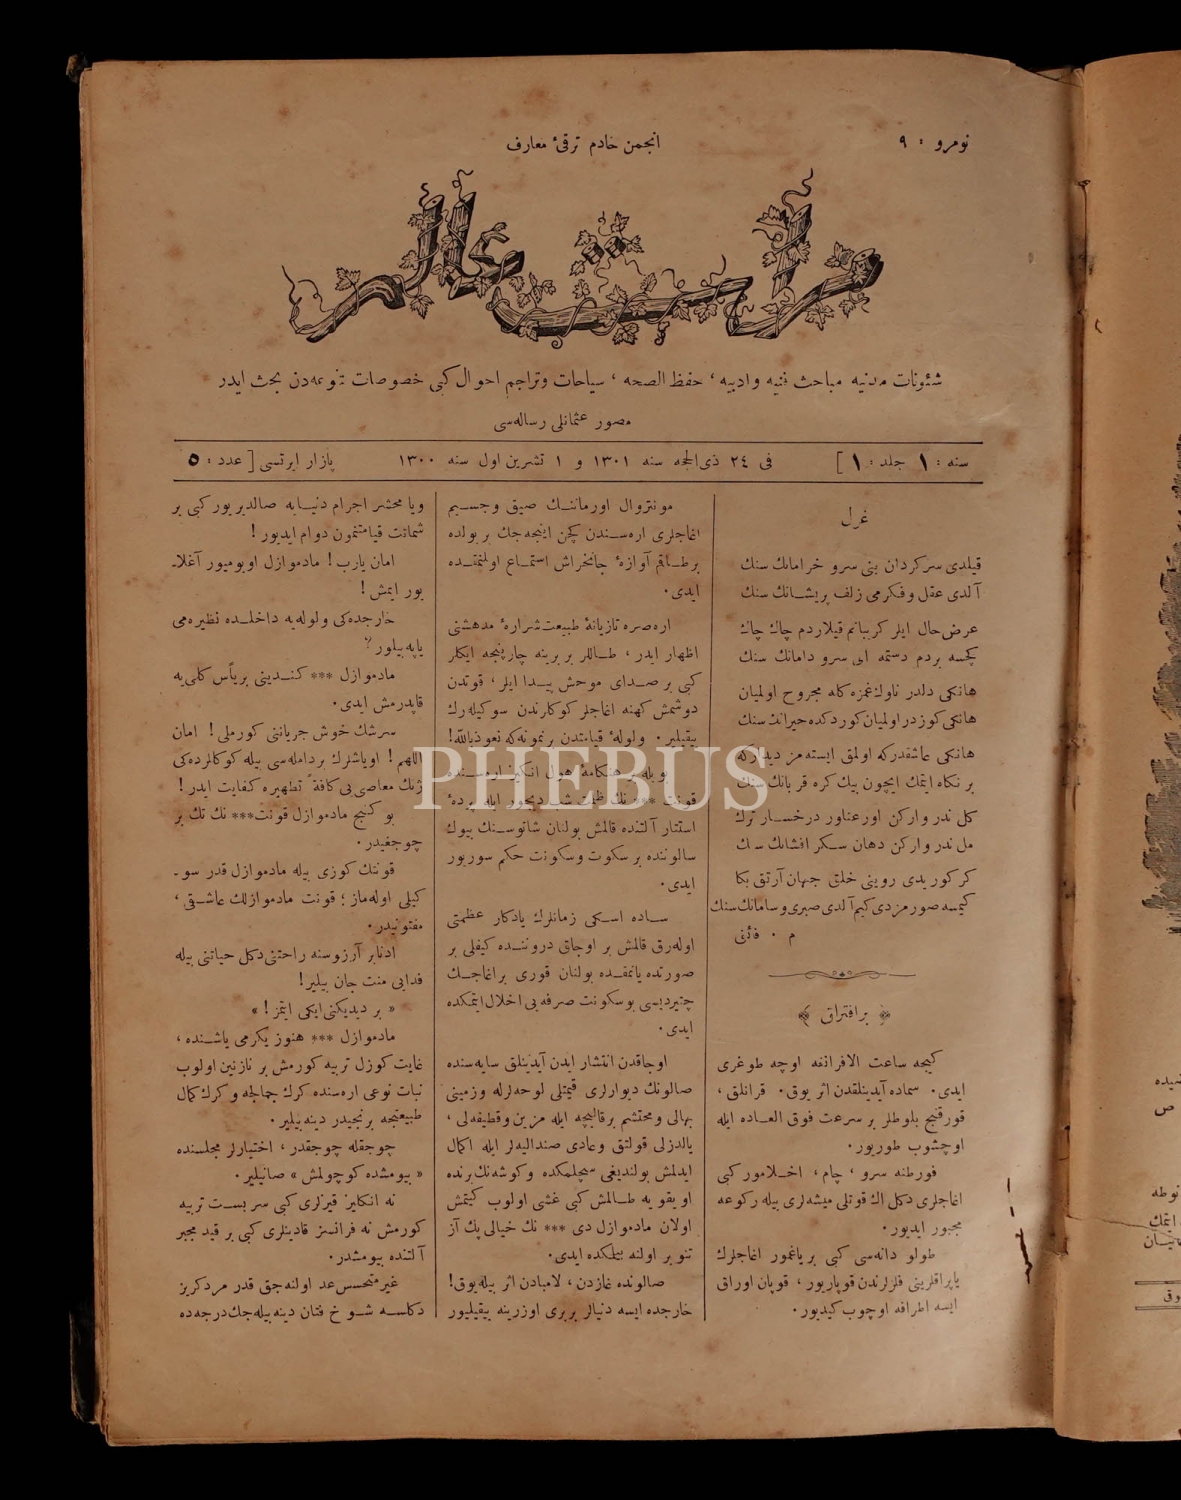 نومرو : ٩
انجمن خادم ترقیٔ معارف
مرآت عالم
شئونات مدنیه مباحث فنیه و ادبیه ، حفظ الصحه ، سیاحات و تراجم احوال کبی خصوصات متنوعه‌دن بحث ایدر
مصور عثمانلی رساله‌سی
سنه : ١ جلد : ١ ]
فی ٢٤ ذی الحجه سنه ١٣٠١ و ١ تشرین اول سنه ١٣٠٠
پازار ایرتسی [ عدد : ٥
غزل
قیلدی سرکردان بنی سرو خرامانك سنك
آلدی عقل و فکرمی زلف پریشانك سنك
عرض حال ایلر کریبانم قیلاردم چاك چاك
کچسه بردم دستمه ای سرو دامانك سنك
هانکی دلدر ناوك غمزه کله مجروح اولمیان
هانکی کوزدر اولمیان کوردکده حیرانك سنك
هانکی عاشقدرکه اولمق ایسته‌مز دیدارکه
بر نکاه ایتمك ایچون بیك کره قربانك سنك
کل ندر وارکن اورعناور درخسار ترك
مل ندر وارکن دهان سکر افشانك سنك
کر کوریدی روینی خلق جهان آرتق بکا
کیمسه صورمزدی کیم آلدی صبری و سامانك سنك
م . فائق
بر افتراق
کیجه ساعت الافرانغه اوچه طوغری
ایدی. سماده آیدینلقدن اثر یوق. قرانلق ،
قورقنج بلوطلر بر سرعت فوق العاده ایله
اوچشوب طوریور.
فورطنه سرو ، چام ، اخلامور کبی
اغاجلری دکل اك قوتلی میشه‌لری بیله رکوعه
مجبور ایدیور.
طولو دانه‌سی کبی بر یاغمور اغاجلرك
یاپراقلرینی قلرلرندن قوپاریور ، قوپان اوراق
ایسه اطرافه اوچوب کیدیور.
مونتروال اورماننك صیق و جسیم
اغاجلری اره‌سندن کچن اینجه‌جك بر یولده
برطاقم آوازهٔ جانخراش استماع اولنمقده
ایدی.
اره‌صره تازیانهٔ طبیعت شرارهٔ مدهشنی
اظهار ایدر ، طاللر بر برینه چارپنجه ایکلر
کبی بر صدای موحش پیدا ایلر ، قوتدن
دوشمش کهنه اغاجلر کوکلرندن سوکیله‌رك
ییقیلیر. ولولهٔ قیامتدن بر نمونه‌که نعوذ بالله!
استتار آلتنده قالمش بولنان شاتوسنك بیوك
سالوننده بر سکوت و سکونت حکم سوریور
ایدی.
ساده اسکی زمانلرك یادکار عظمتی
اوله‌رق قالمش بر اوجاق دروننده کیفلی بر
صورتده یانمقده بولنان قوری بر اغاجك
چتیردیسی بو سکونت صرفه‌یی اخلال ایتمکده
ایدی.
اوجاقدن انتشار ایدن آیدینلق سایه‌سنده
صالونك دیوارلری قیمتلی لوحه‌لرله و زمینی
بهالی و محتشم بر قالیچه ایله مزین و قطیفه‌لی ،
یالدزلی قولتق و عادی صندالیه‌لر ایله اکمال
ایدلمش بولندیغی سچلمکده و کوشه‌نك برنده
اویقویه طالمش کبی غشی اولوب کیتمش
اولان مادموازل دی *** نك خیالی پك آز
تنویر اولنه بیلمکده ایدی.
صالونده غازدن ، لامبادن اثر بیله یوق!
خارجده ایسه دنیالر بربری اوزرینه ییقیلیور
ویا محشر اجرام دنیایه صالدیریور کبی بر
شماتت قیامتنمون دوام ایدیور !
امان یارب ! مادموازل اویومیور آغلا-
یور ایمش !
خارجده‌کی ولوله‌یه داخلده نظیره‌می
یاپه‌بیلور ؟
مادموازل *** کندینی بر یأس کلی‌یه
قاپدرمش ایدی.
سرشك خوش جریاننی کورملی ! امان
اللهم ! او یاشلرك بر دامله‌سی بیله کوکللرده‌کی
ژنك معاصی‌یی کافةً تطهیره کفایت ایدر !
بو کنج مادموازل قونت *** نك تك بر
چوجغیدر.
قونتك کوزی بیله مادموازل قدر سو-
کیلی اوله‌ماز ؛ قونت مادموازلك عاشقی ،
مفتونیدر.
ادنا بر آرزوسنه راحتنی دکل حیاتنی بیله
فدایی منت جان بیلیر !
« بر دیدیکنی ایکی ایتمز ! »
مادموازل *** هنوز یکرمی یاشنده ،
غایت کوزل تربیه کورمش بر نازنین اولوب
نبات نوعی اره‌سنده کرك جمالجه و کرك کمال
طبیعتجه برنجیدر دینه‌بیلیر.
چوجقله چوجقدر ، اختیارلر مجلسنده
« بیومشده کوچولمش » صانیلیر.
نه انکلیز قیزلری کبی سربست تربیه
کورمش نه فرانسز قادینلری کبی بر قید مجبر
آلتنده بیومشدر.
غیر متحسس عد اولنه‌جق قدر مردکریز
دکلسه شوخ فتان دینه‌بیله‌جك درجه‌ده
PHEBUS